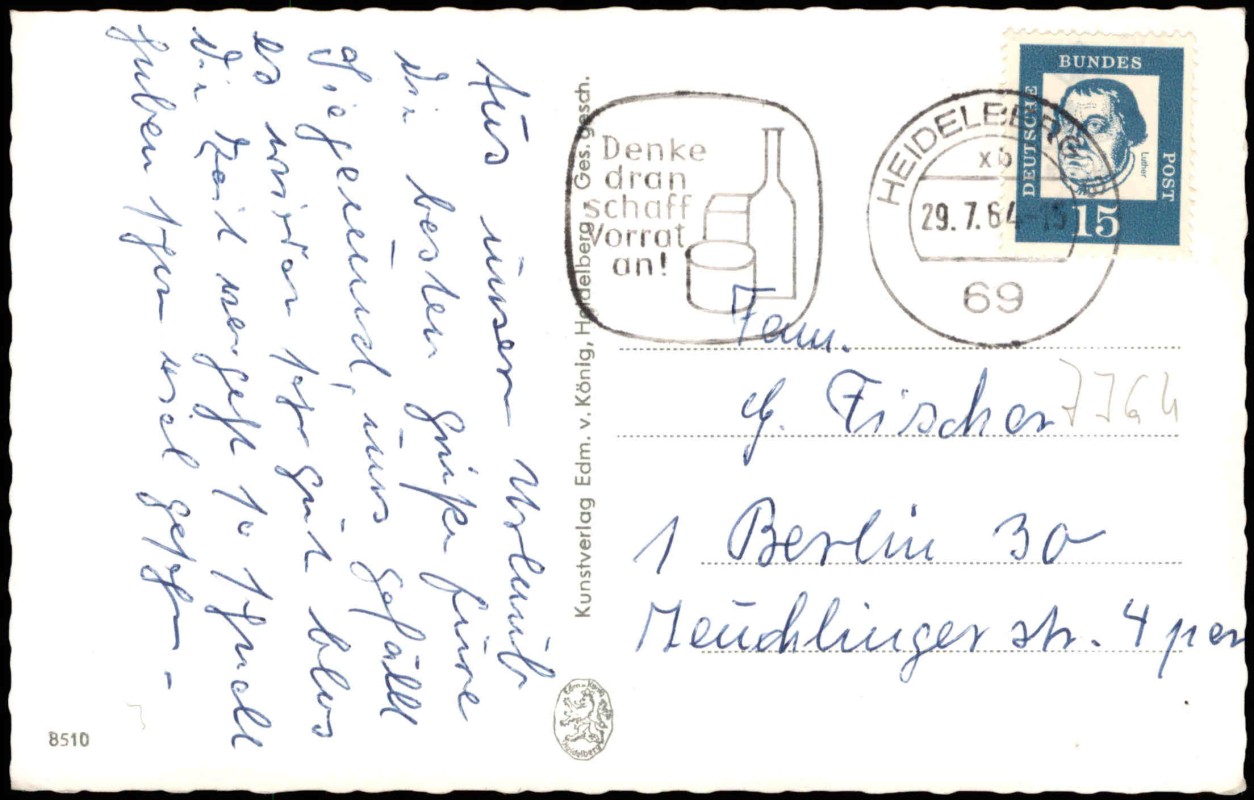 Aus unser Urlaub
die besten Grüße
Gegend, uns gefällt
es wieder sehr gut blos
die Zeit vergeht so schnell
haben schon viel gesehen -
Kunstverlag Edm. v. König, Heidelberg · Ges. gesch.
Denke
dran
schaff
Vorrat
an!
HEIDELBERG
xb
29.7.64-15
69
DEUTSCHE BUNDES POST
Luther
15
Fam.
G. Fischer
7764
1 Berlin 30
str. 4
8510